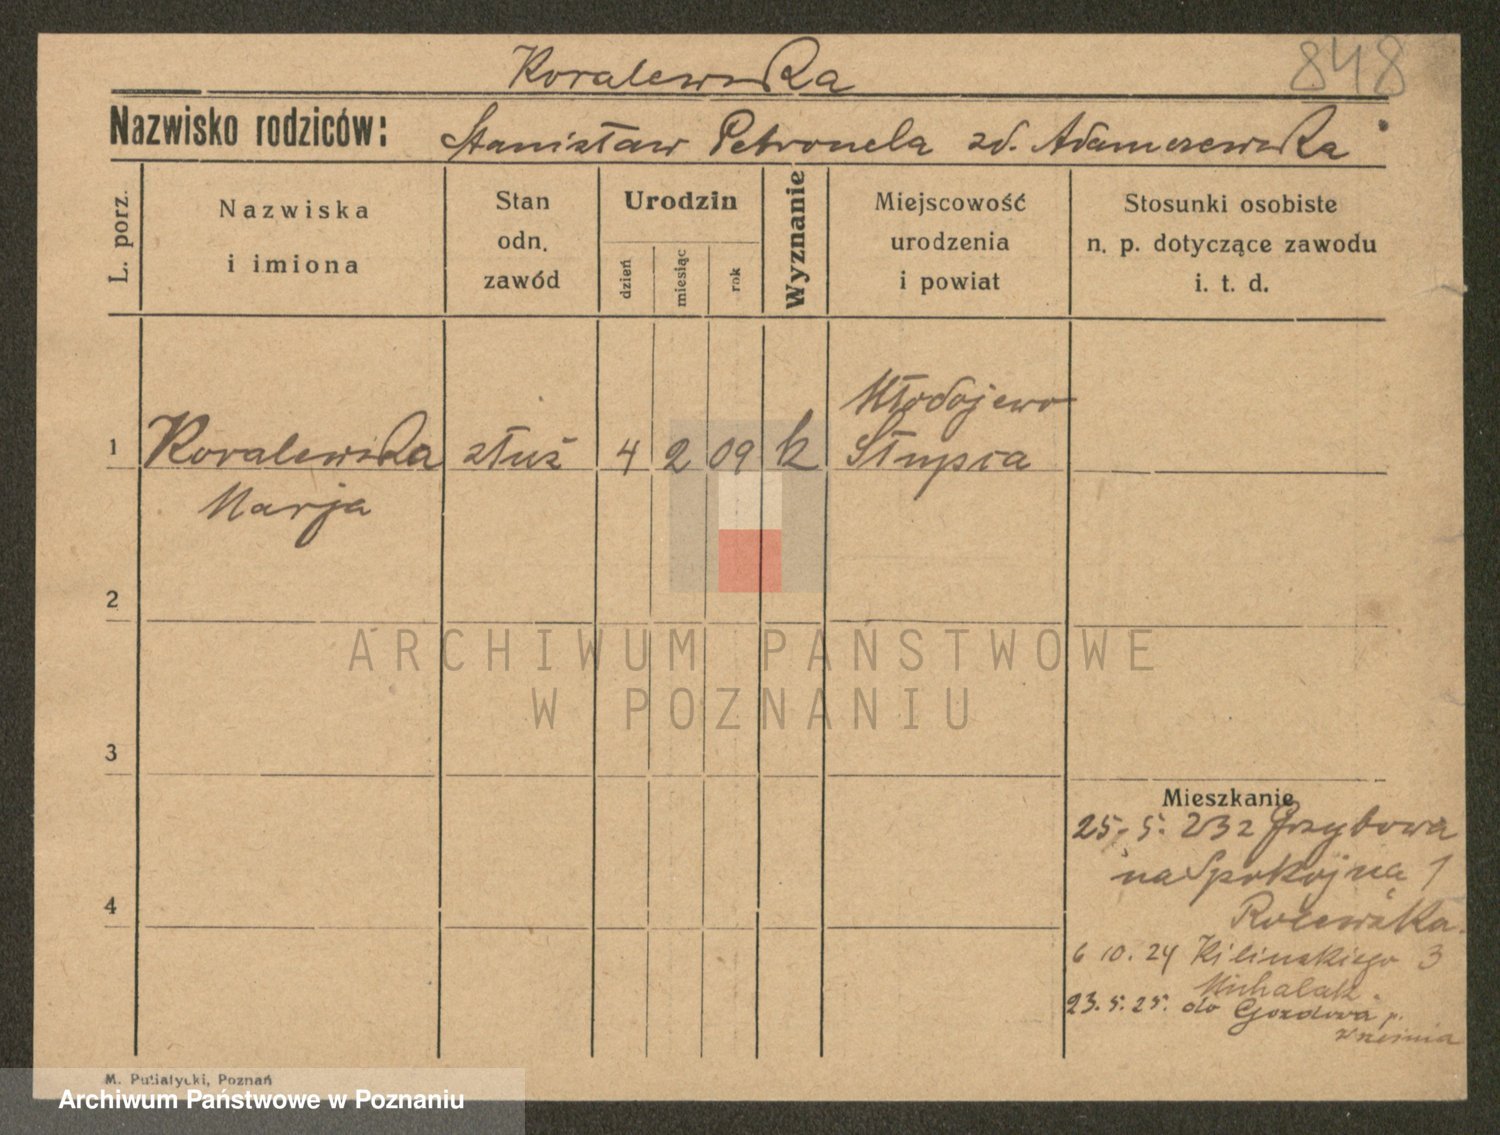 848
Koralewska
Nazwisko rodziców: Stanisław Petronela zd. Adamczewska
L. porz.
Nazwiska
i imiona
Stan
odn.
zawód
Urodzin
dzień
miesiąc
rok
Wyznanie
Miejscowość
urodzenia
i powiat
Stosunki osobiste
n. p. dotyczące zawodu
i. t. d.
Młodojewo
1 Koralewska służ 4 2 09 k Słupca
Marja
2
3
4
Mieszkanie
25. 5. Grzybowa
na Spokojną 1
6 10. 24 Kilinskiego 3
Michalak.
23. 5. 25. do Gozdowa p.
Września
M. Putiatycki, Poznań
ARCHIWUM PAŃSTWOWE
W POZNANIU
Archiwum Państwowe w Poznaniu